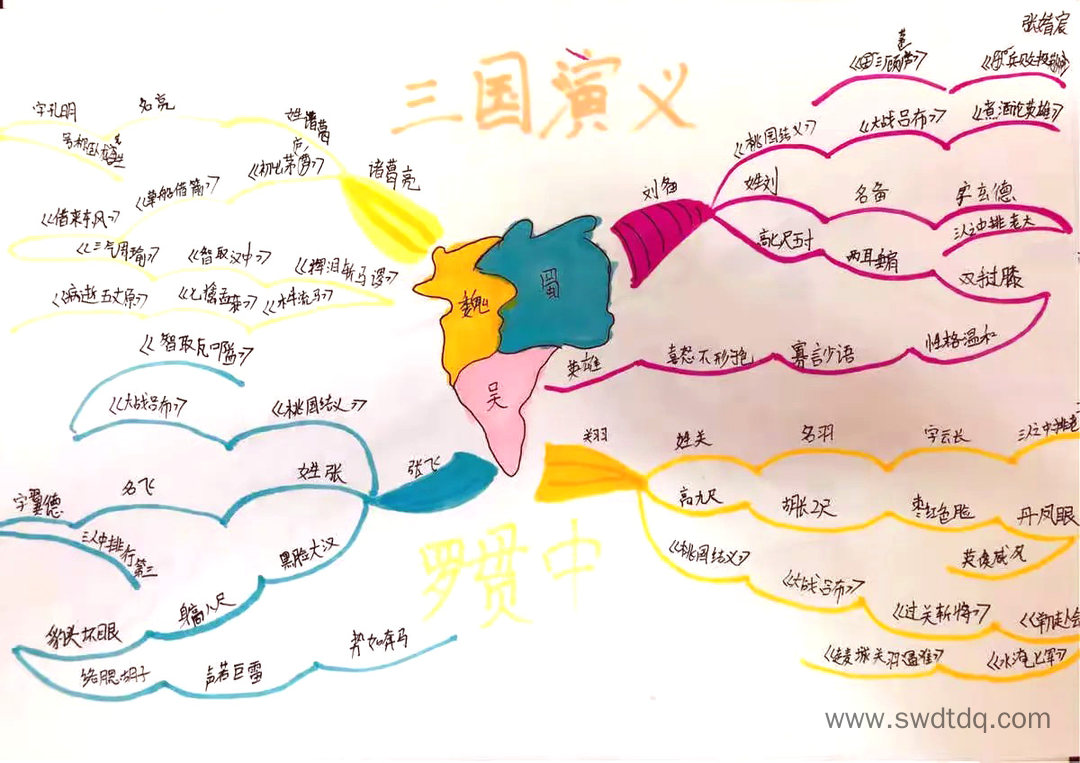 三国演义
罗贯中
蜀
魏
吴
诸葛亮
姓诸葛
名亮
字孔明
《草船借箭》
《借来东风》
《三气周瑜》
《智取汉中》
《挥泪斩马谡》
《木牛流马》
《七擒孟获》
《病逝五丈原》
刘备
《桃园结义》
《大战吕布》
《煮酒论英雄》
姓刘
名备
字玄德
三人之中排老大
高七尺五寸
两耳垂肩
双手过膝
性格温和
寡言少语
喜怒不形于色
英雄
张飞
《桃园结义》
《大战吕布》
《智取瓦口隘》
姓张
名飞
字翼德
三人中排行第三
黑脸大汉
身高八尺
豹头环眼
络腮胡子
声若巨雷
势如奔马
姓关
名羽
字云长
高九尺
胡长2尺
枣红色脸
丹凤眼
英俊威风
《桃园结义》
《大战吕布》
《过关斩将》
《水淹七军》
《走麦城关羽遇难》
www.swdtdq.com